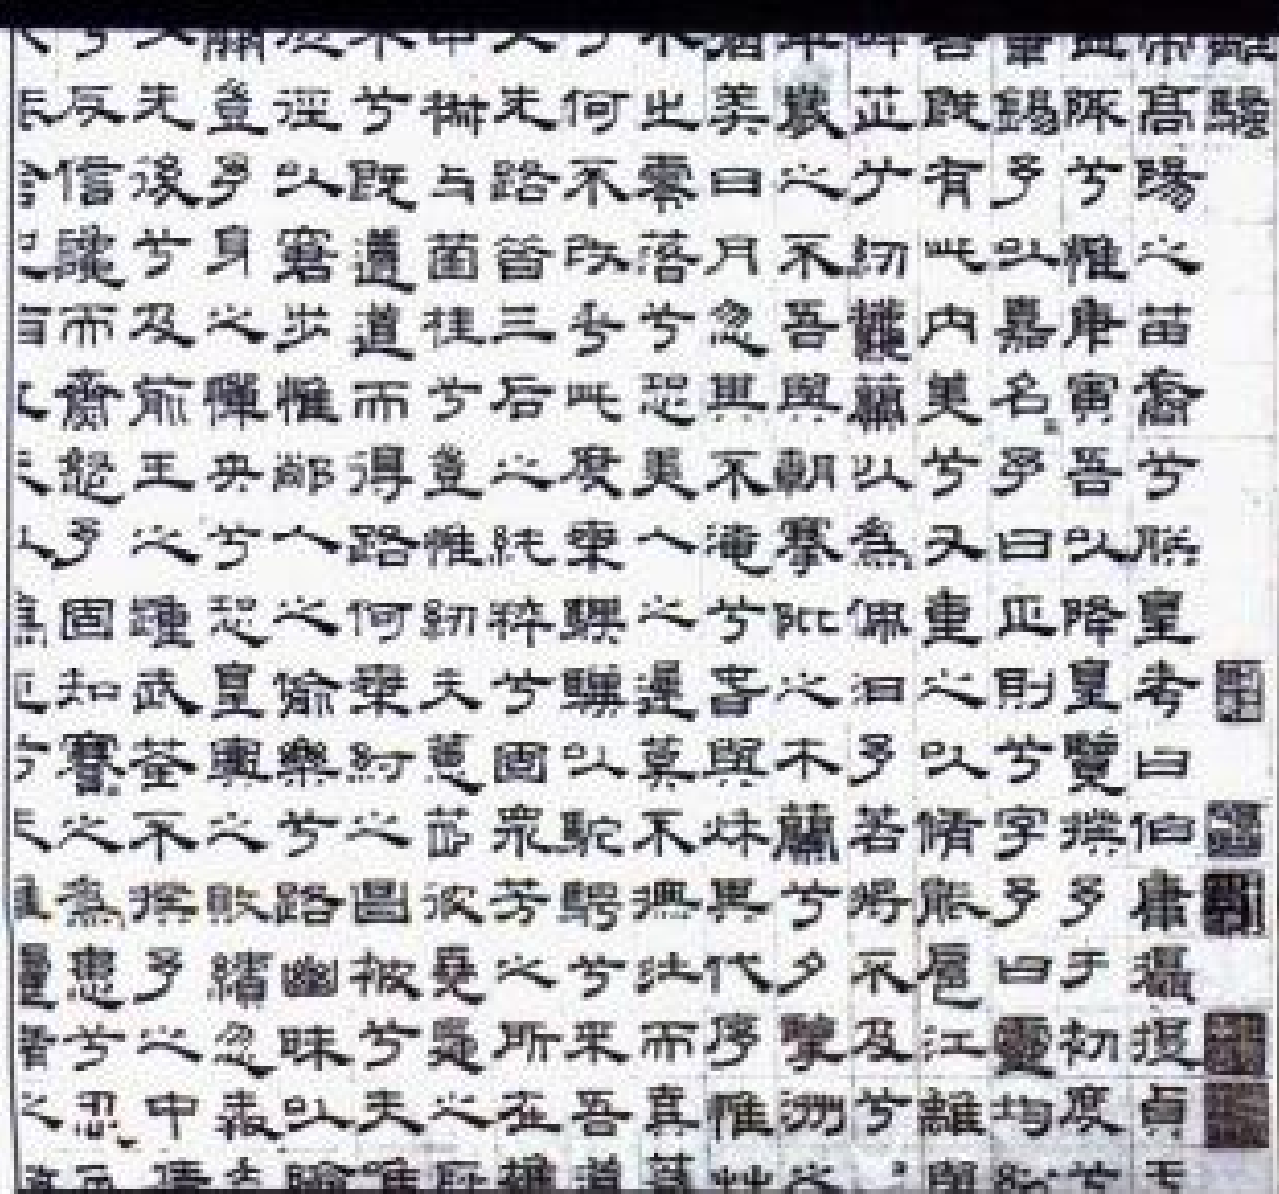 離騷
帝高陽之苗裔兮朕皇考曰伯庸攝提貞于
孟陬兮惟庚寅吾以降皇覽揆予于初度兮
肇錫予以嘉名予曰正則兮字予曰靈均紛
吾既有此内美兮又重之以脩能扈江離與
芷兮紉秋蘭以為佩汩予若將不及兮
年歲之不吾與朝搴阰之木蘭兮夕擥洲之
莽日月忽其不淹兮春與秋其代序惟艸
木之零落兮恐美人之遲莫不撫壯而棄穢
兮何不改乎此度乘騏驥以駝騁兮來吾道
夫先路昔三后之純粹兮固衆芳之所在雜
申椒与菌桂兮豈惟紉夫蕙茝彼堯舜之耿
介兮既遵道而得路何桀紂之昌被兮夫唯
捷徑以窘步惟黨人之偷樂兮路幽昧以險
豈予身之憚央兮恐皇輿之敗績忽奔走
以先後兮及前王之踵武荃不揆予之中情
兮反信讒而齌怒予固知謇之為患兮忍而